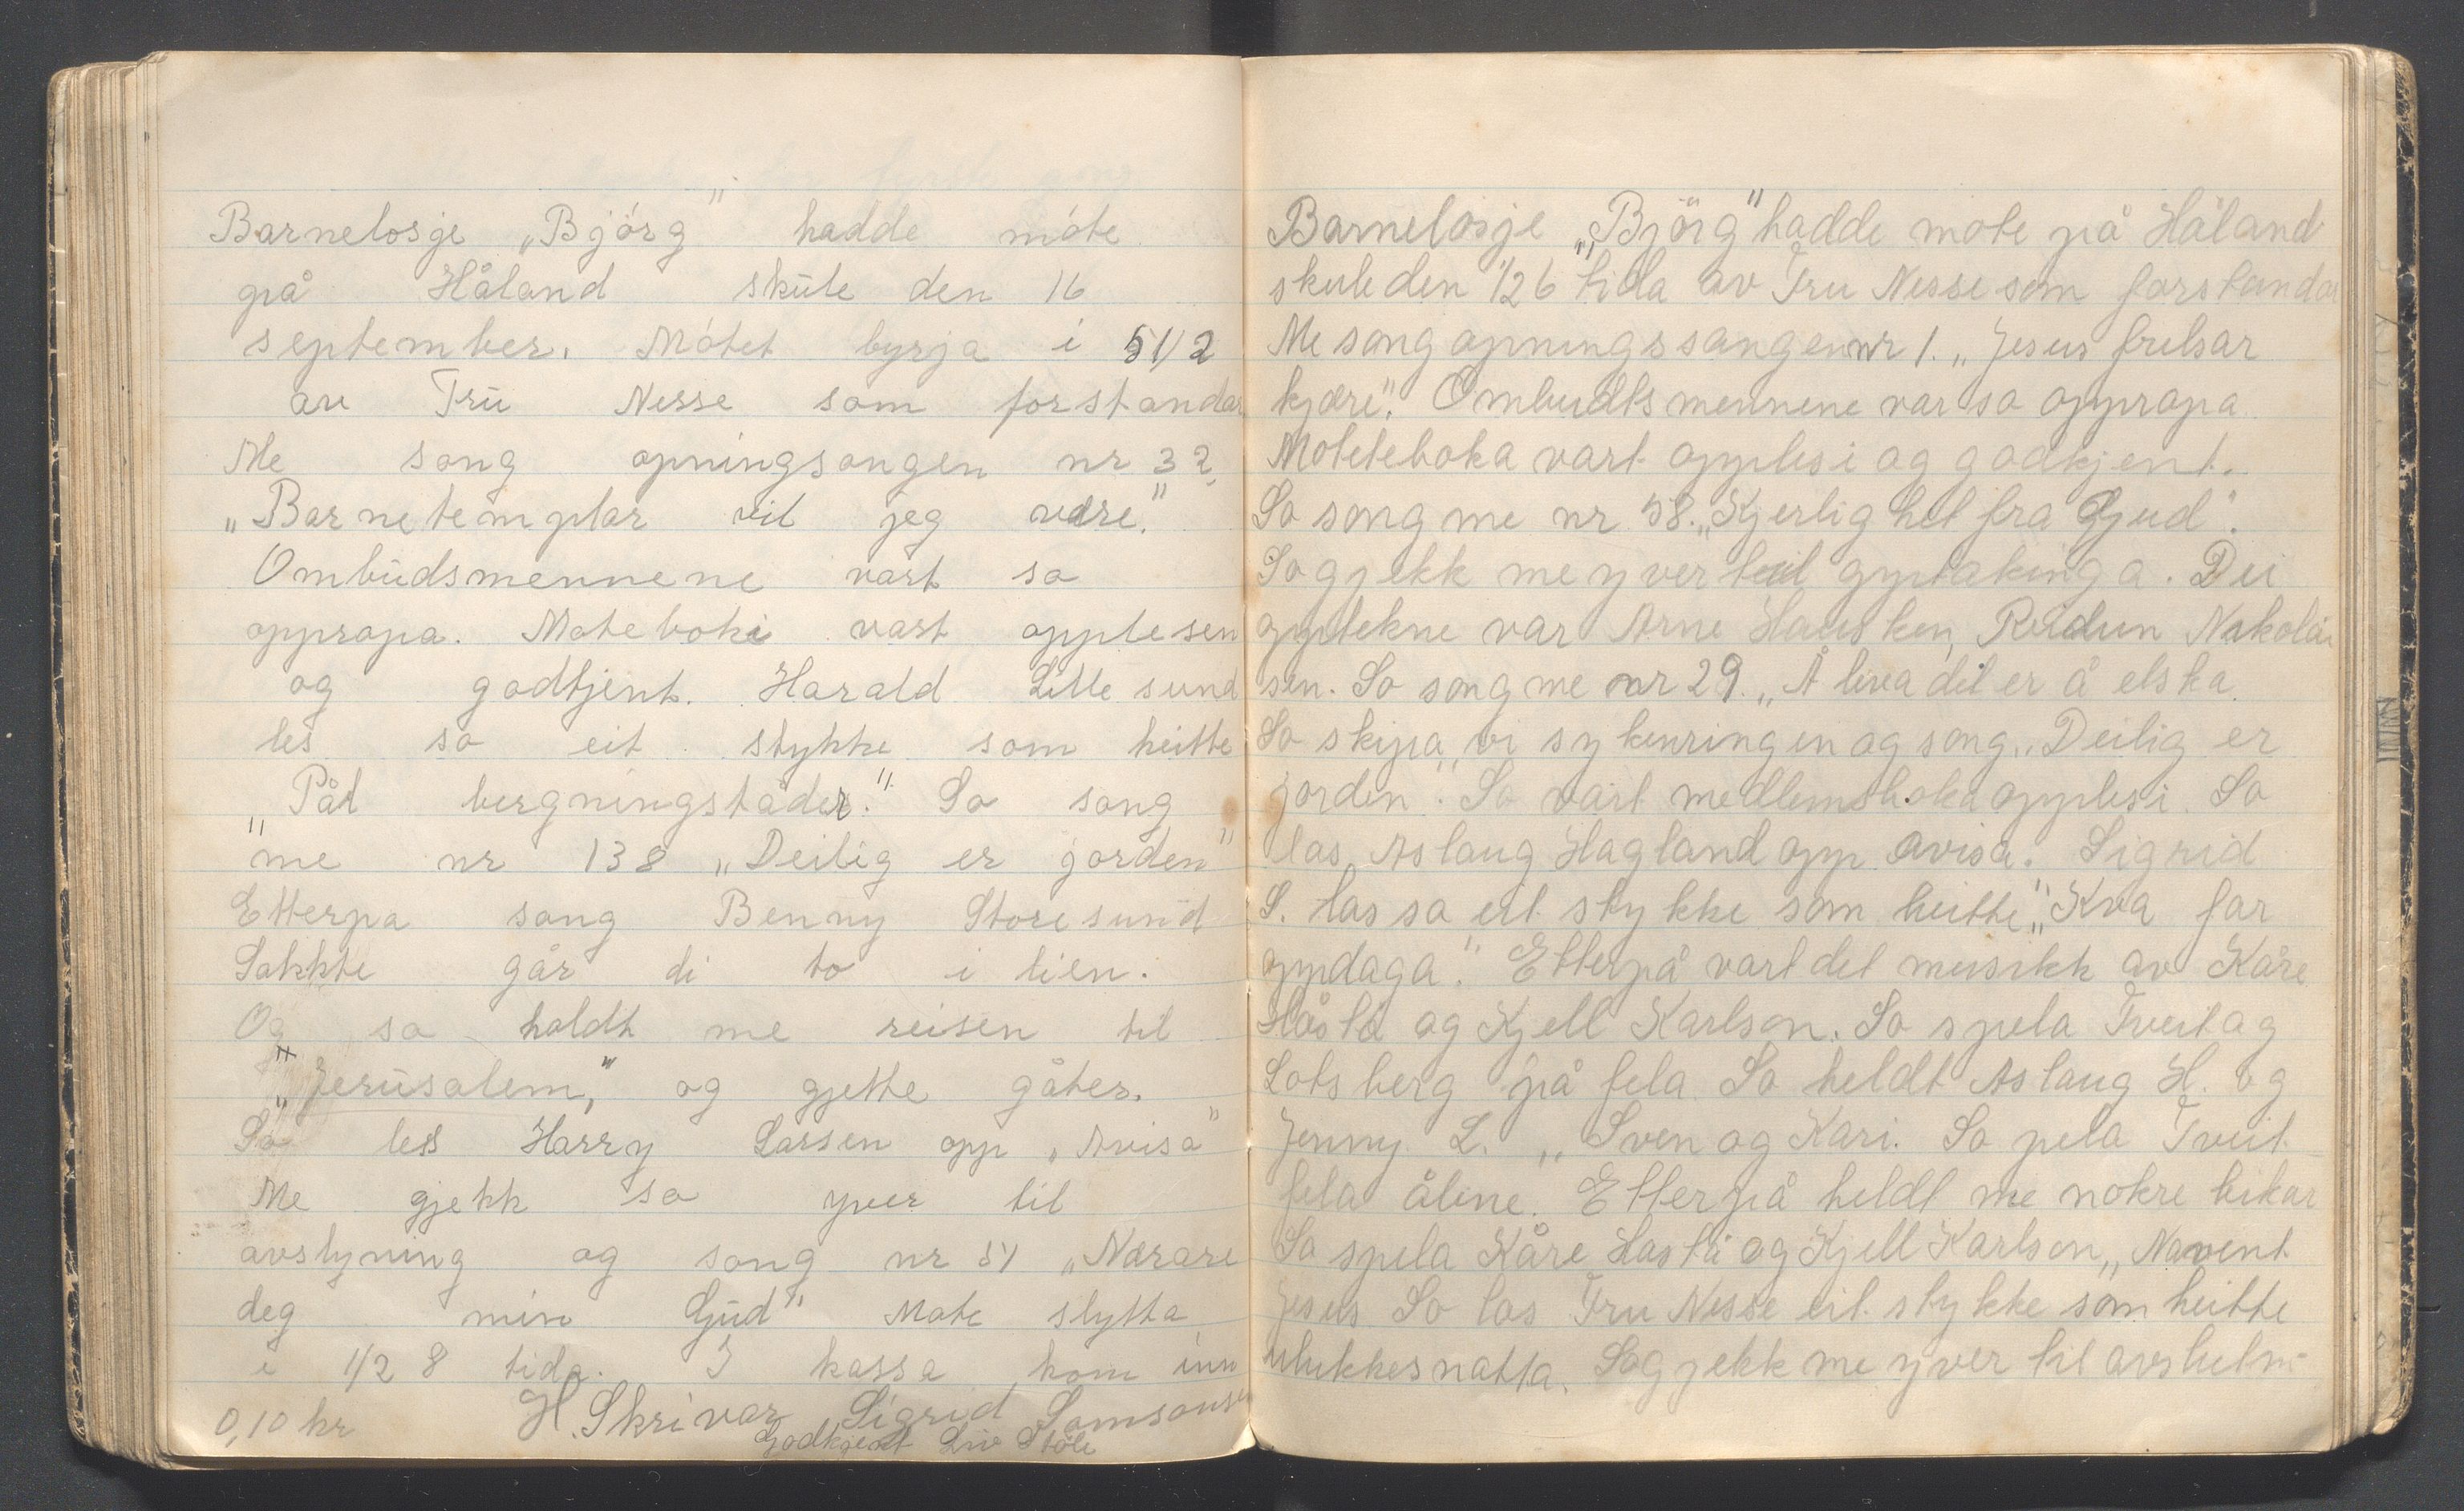 Barnelosje „Bjørg" hadde móte
på Håland skule den 16
september. Mótet byrja i 51/2
av Fru Nesse som forstandar
Me song opningsongen nr 32,
„Barnetemplar vil jeg være."
Ombudsmennene vart so
oppropa. Moteboki vart opplesen
og godkjent. Harald Litle sund
les so eit stykke som heitte
„Pål bergningstader." So song
me nr 138 „Deilig er jorden"
Etterpa song Benny Storesund
Sakkte går di to i lien.
Og so holdt me reisen til
„Jerusalem," og gjette gåter.
So less Harry Larsen opp „Avisa"
Me gjekk so yver til
avslyning og song nr 51 „Nærare
deg min Gud" Mote slytta
i 1/2 8 tida. I kassa kom inn
0,10 kr H. Skrivar Sigrid Samsonsen
Godkjent Liv Støle
Barnelosje „Björg" hadde mote på Håland
skule den 1/2 6 tida av Fru Nesse som forstandar
Me song opningssangen nr 1. „Jesus frelsar
kjære". Ombudtsmennene var so oppropa
Moteteboka vart opplesi og godkjent.
So song me nr 58. „Kjerlighet fra Gud".
So gjekk me yver til opptakinga. Dei
opptekne var Arne Hausken, Reidun Nikolai
sen. So song me nr 29. „Å leva det er å elska.
So skipa vi sykenringen og song „Deilig er
jorden". So vart medlemsboka opplesi. So
las Aslaug Hagland opp avisa. Sigrid
S. las so eit stykke som heitte „Kva far
oppdaga." Etterpå vart det musikk av Kåre
Håstå og Kjell Karlson. So spela Tveit og
Lotsberg på fela So heldt Aslaug H. og
Jenny L. „Sven og Kari. So pela Tveit
fela åline. Etterpå heldt me nokre leikar
So spela Kåre Hastå og Kjell Karlson „Navent
Jesus So las Fru Nesse eit stykke som heitte
ulukkesnatta. So gjekk me yver til avslutni